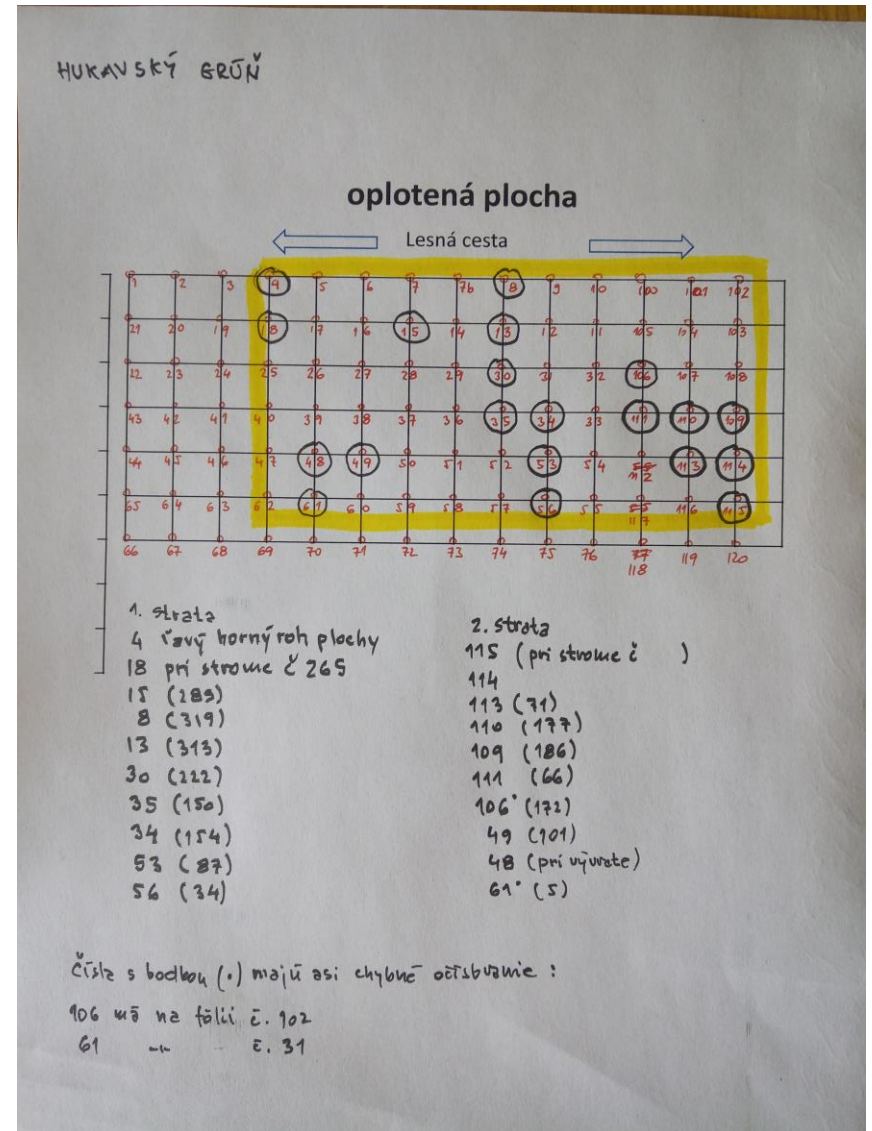 HUKAVSKÝ GRÚŇ
oplotená plocha
Lesná cesta
1 2 3 4 5 6 7 7b 8 9 10 100 101 102
21 20 19 18 17 16 15 14 13 12 11 105 104 103
22 23 24 25 26 27 28 29 30 31 32 106 107 108
43 42 41 40 39 38 37 36 35 34 33 111 110 109
44 45 46 47 48 49 50 51 52 53 54 112 113 114
65 64 63 62 61 60 59 58 57 56 55 117 116 115
66 67 68 69 70 71 72 73 74 75 76 77 118 119 120
1. strata
4 ľavý horný roh plochy
18 pri strome č 265
15 (285)
8 (319)
13 (313)
30 (222)
35 (150)
34 (154)
53 (87)
56 (34)
2. strata
115 (pri strome č )
114
113 (71)
110 (177)
109 (186)
111 (66)
106• (172)
49 (101)
48 (pri vývrate)
61• (5)
Čísla s bodkou (•) majú asi chybné očíslovanie :
106 má na fólii č. 102
61 -"- č. 31